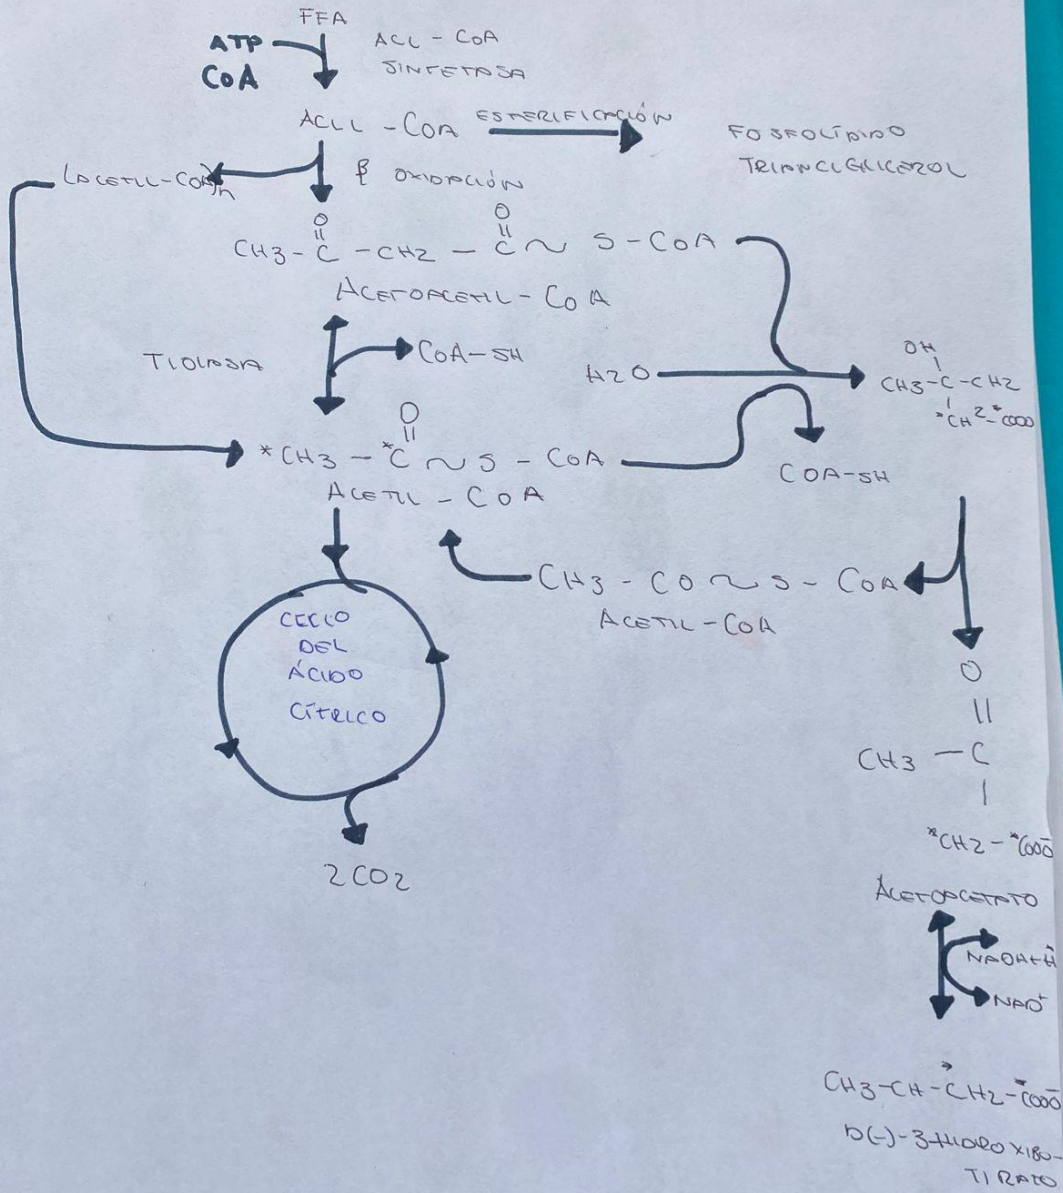 FFA
ATP
CoA
ACIL - COA
SINTETASA
ACIL - COA
ESTERIFICACIÓN
FOSFOLÍPIDO
TRIANCIGLICEROL
(ACETIL-CoA)n
β OXIDACIÓN
O O
|| ||
CH3 - C - CH2 - C ~ S - COA
ACETOACETIL - COA
TIOLASA
COA-SH
H2O
OH
|
CH3-C-CH2
|
*CH2-*COO
O
||
*CH3 - *C ~ S - COA
ACETIL - COA
COA-SH
CH3 - CO ~ S - COA
ACETIL-COA
CICLO
DEL
ÁCIDO
CÍTRICO
2CO2
O
||
CH3 - C
|
*CH2 - *COO-
ACETOACETATO
NADH+H
NAD+
CH3-CH-*CH2-*COO-
D(-)-3-HIDROXIBU-
TIRATO